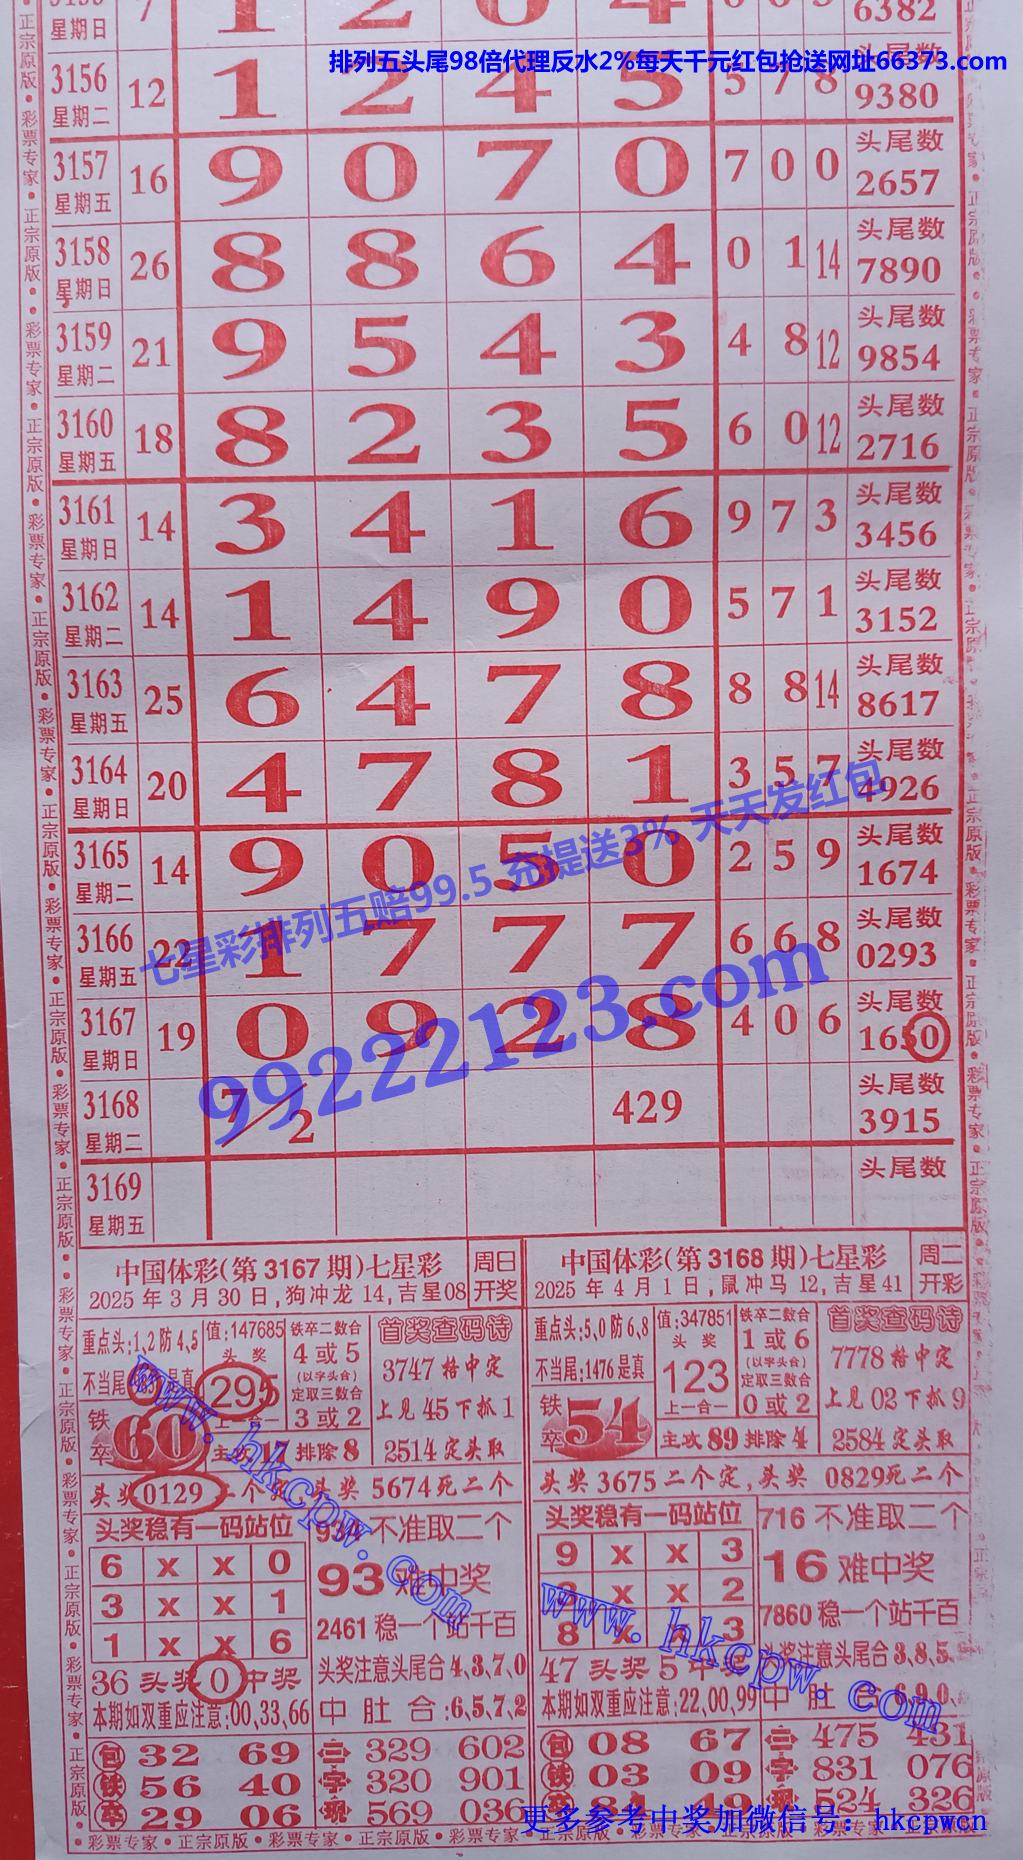 星期日 7 1 2 0 4 6382
排列五头尾98倍代理反水2%每天千元红包抢送网址66373.com
3156 星期二 12 1 2 4 5 5 7 8 头尾数 9380
3157 星期五 16 9 0 7 0 7 0 0 头尾数 2657
3158 星期日 26 8 8 6 4 0 1 14 头尾数 7890
3159 星期二 21 9 5 4 3 4 8 12 头尾数 9854
3160 星期五 18 8 2 3 5 6 0 12 头尾数 2716
3161 星期日 14 3 4 1 6 9 7 3 头尾数 3456
3162 星期二 14 1 4 9 0 5 7 1 头尾数 3152
3163 星期五 25 6 4 7 8 8 8 14 头尾数 8617
3164 星期日 20 4 7 8 1 3 5 7 头尾数 4926
3165 星期二 14 9 0 5 0 2 5 9 头尾数 1674
3166 星期五 22 1 7 7 7 6 6 8 头尾数 0293
3167 星期日 19 0 9 2 8 4 0 6 头尾数 1650
3168 星期二 7/2 429 头尾数 3915
3169 星期五 头尾数
七星彩排列五赔99.5 充提送3% 天天发红包
99222123.com
中国体彩(第3167期)七星彩 周日开奖
2025年3月30日,狗冲龙14,吉星08
重点头:1,2防4,5 值:147685 铁卒二数合 首奖查码诗
头奖 4或5 3747格中定
不当尾 是真 295 (以字头合)
上一合一 定取三数合 上见45下抓1
铁卒 60 3或2
主攻17 排除8 2514定头取
头奖0129二个 头奖 5674死二个
头奖稳有一码站位 934不准取二个
6 x x 0 93难中奖
3 x x 1
1 x x 6 2461稳一个站千百
36头奖0中奖 头奖注意头尾合4,3,7,0
本期如双重应注意:00,33,66 中肚合:6,5,7,2
包 32 69 三 329 602
铁 56 40 字 320 901
卒 29 06 现 569 036
中国体彩(第3168期)七星彩 周二开彩
2025年4月1日,鼠冲马12,吉星41
重点头:5,0防6,8 值:347851 铁卒二数合 首奖查码诗
头奖 1或6 7778格中定
不当尾:1476是真 123 (以字头合)
上一合一 定取三数合 上见02下抓9
铁卒 54 0或2
主攻89 排除4 2584定头取
头奖3675二个定,头奖 0829死二个
头奖稳有一码站位 716不准取二个
9 x x 3 16难中奖
x x 2
8 x x 3 7860稳一个站千百
47头奖5中奖 头奖注意头尾合3,8,5
本期如双重应注意:22,00,99 中肚合:6,9,0
包 08 67 三 475 431
铁 03 09 字 831 076
卒 84 49 现 524 326
www.hkcpw.com
www.hkcpw.com
更多参考中奖加微信号: hkcpwcn
彩票专家•正宗原版•彩票专家•正宗原版•彩票专家•正宗原版•彩票专家•正宗原版•彩票专家